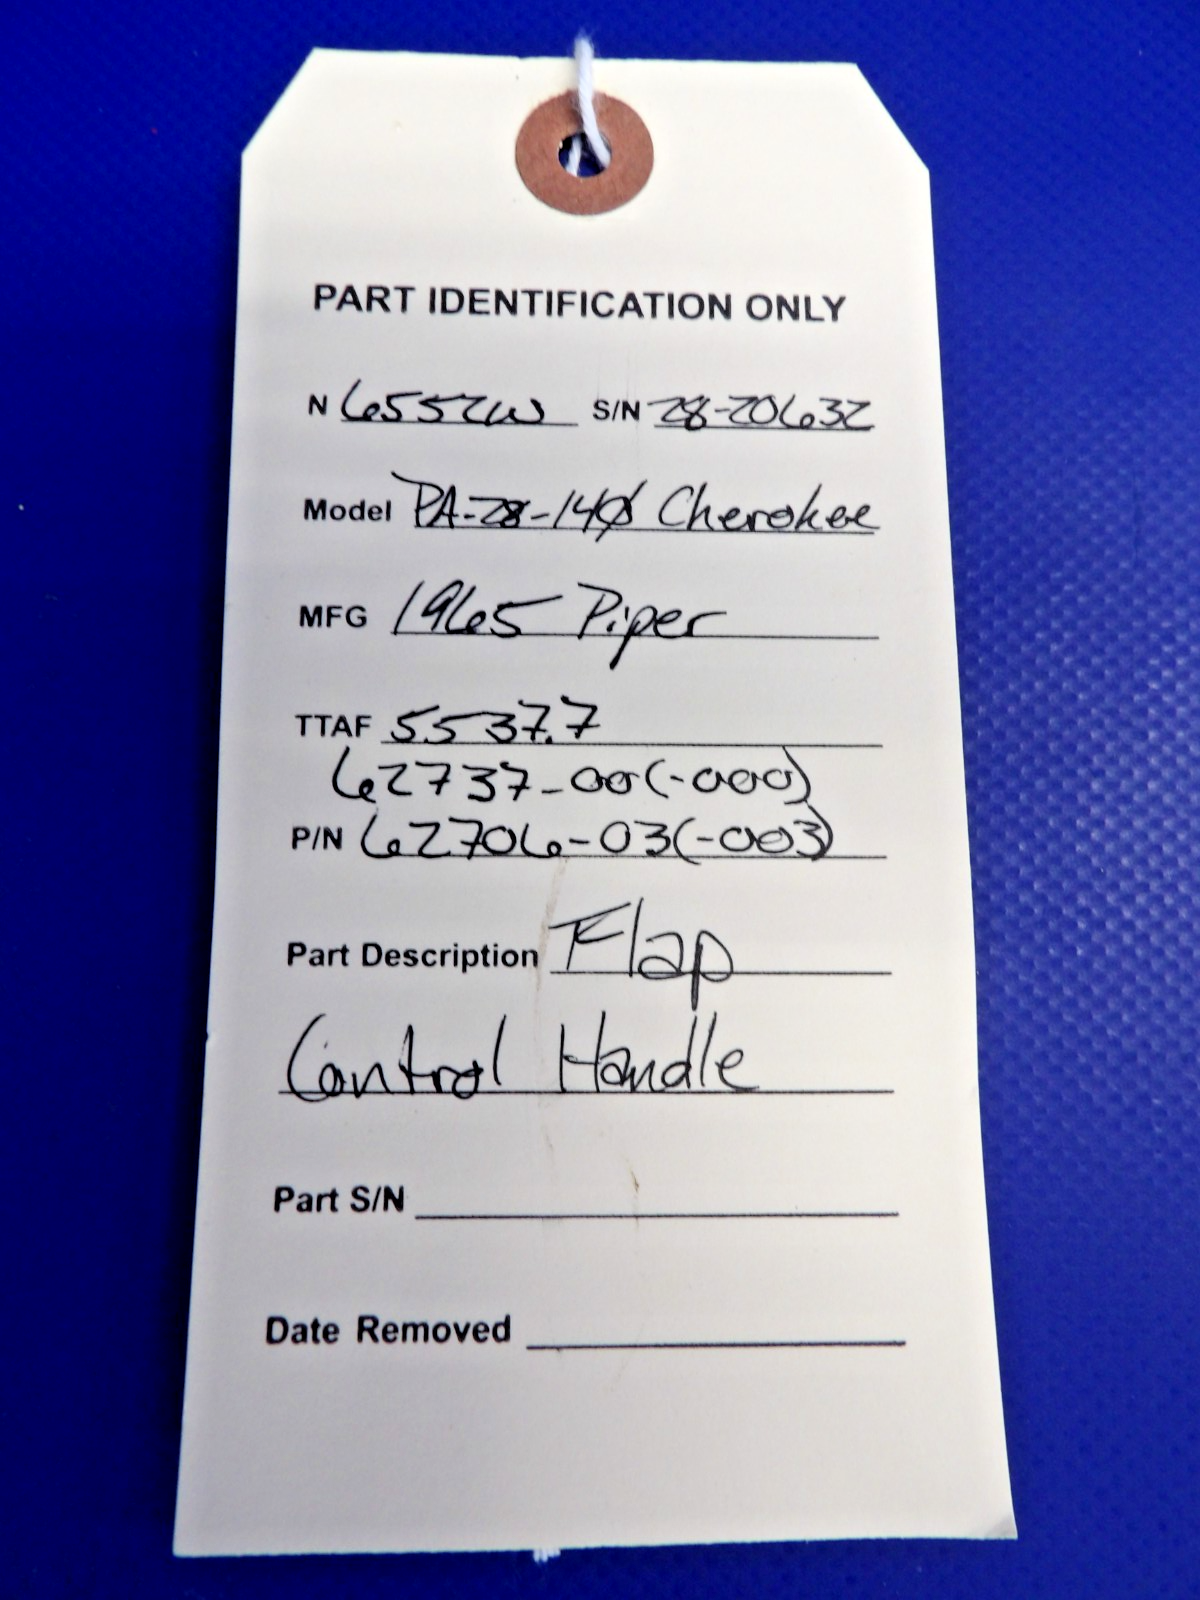 PART IDENTIFICATION ONLY
N 6552W S/N 28-20632
Model PA-28-140 Cherokee
MFG 1965 Piper
TTAF 5537.7
62737-00(-000)
P/N 62706-03(-003)
Part Description Flap
Control Handle
Part S/N
Date Removed